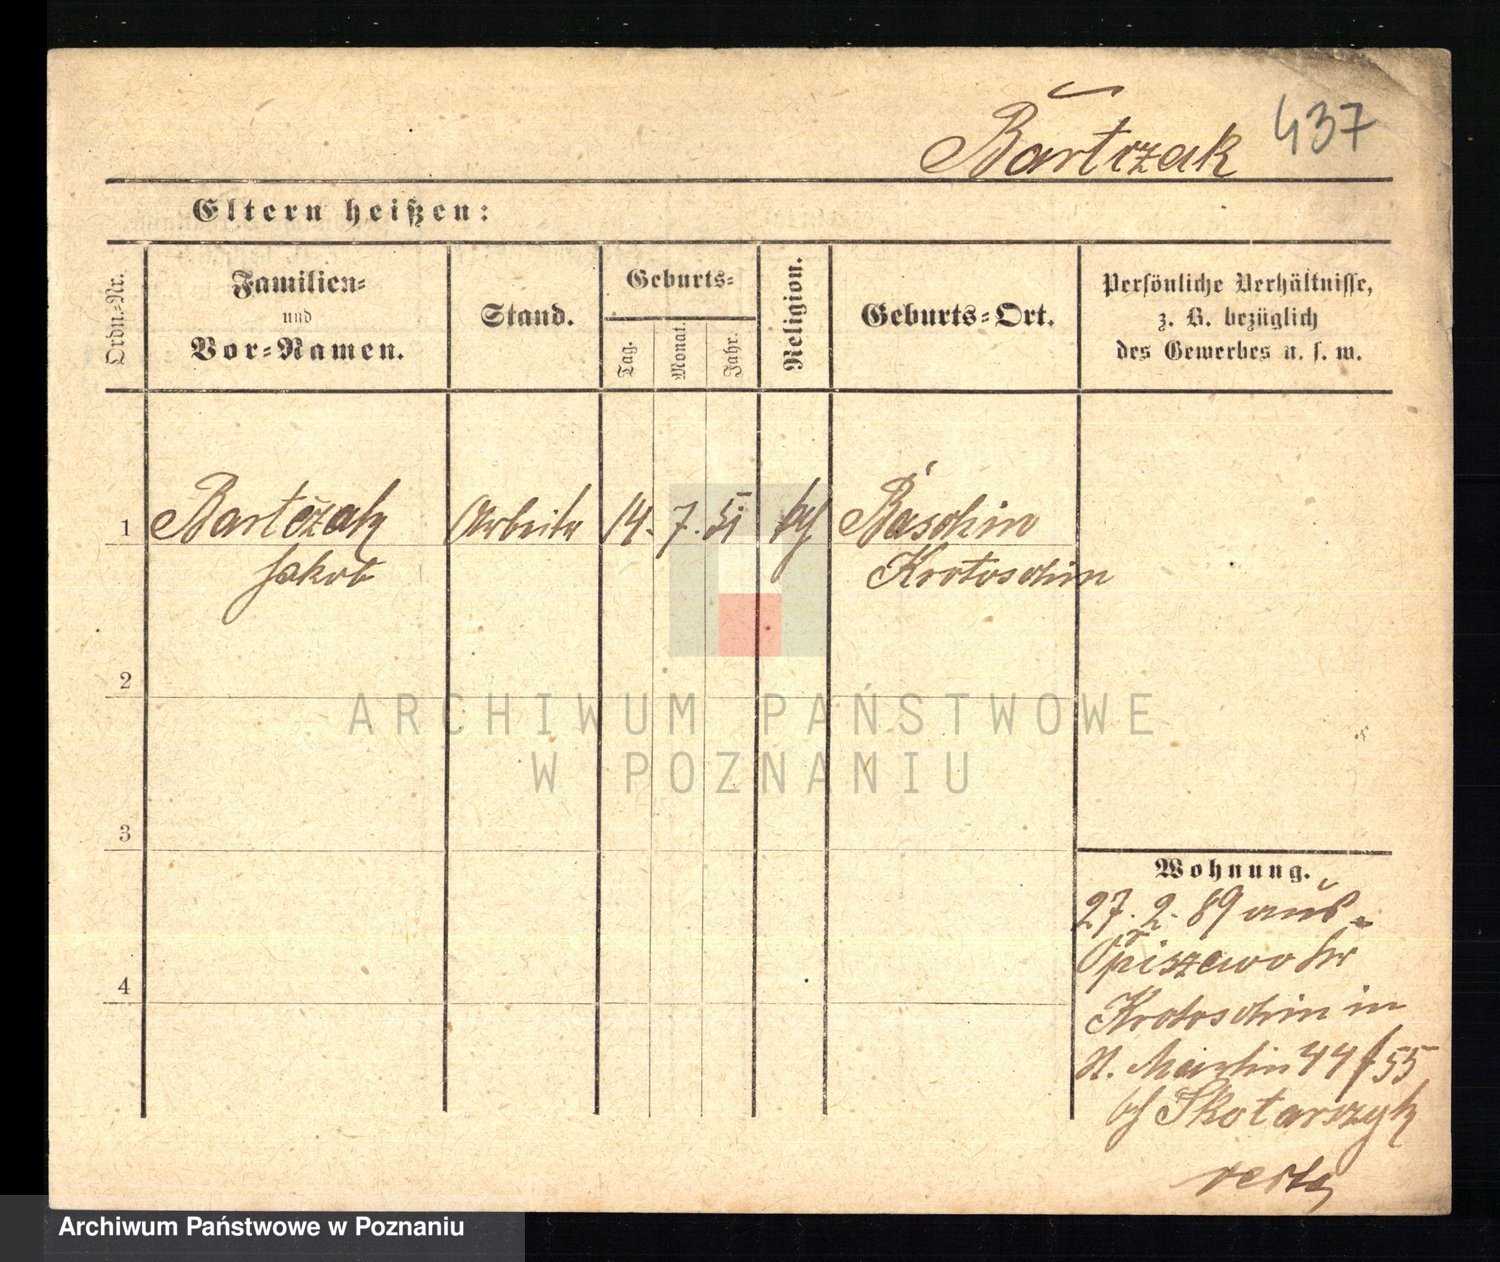 Bartczak 437
Eltern heißen:
Ordn.-Nr.
Familien-
und
Vor-Namen.
Stand.
Geburts-
Tag.
Monat.
Jahr.
Religion.
Geburts-Ort.
Persönliche Verhältnisse,
z. B. bezüglich
des Gewerbes u. s. w.
1 Bartczak Arbeiter 14. 7. 51 kth Baschin
Jakob Krotoschin
2
3
4
Wohnung.
27. 2. 89 aus
Opiszewo Kr
Krotoschin in
St. Martin 44/55
bei Skotarczyk
verte
ARCHIWUM PAŃSTWOWE
W POZNANIU
Archiwum Państwowe w Poznaniu